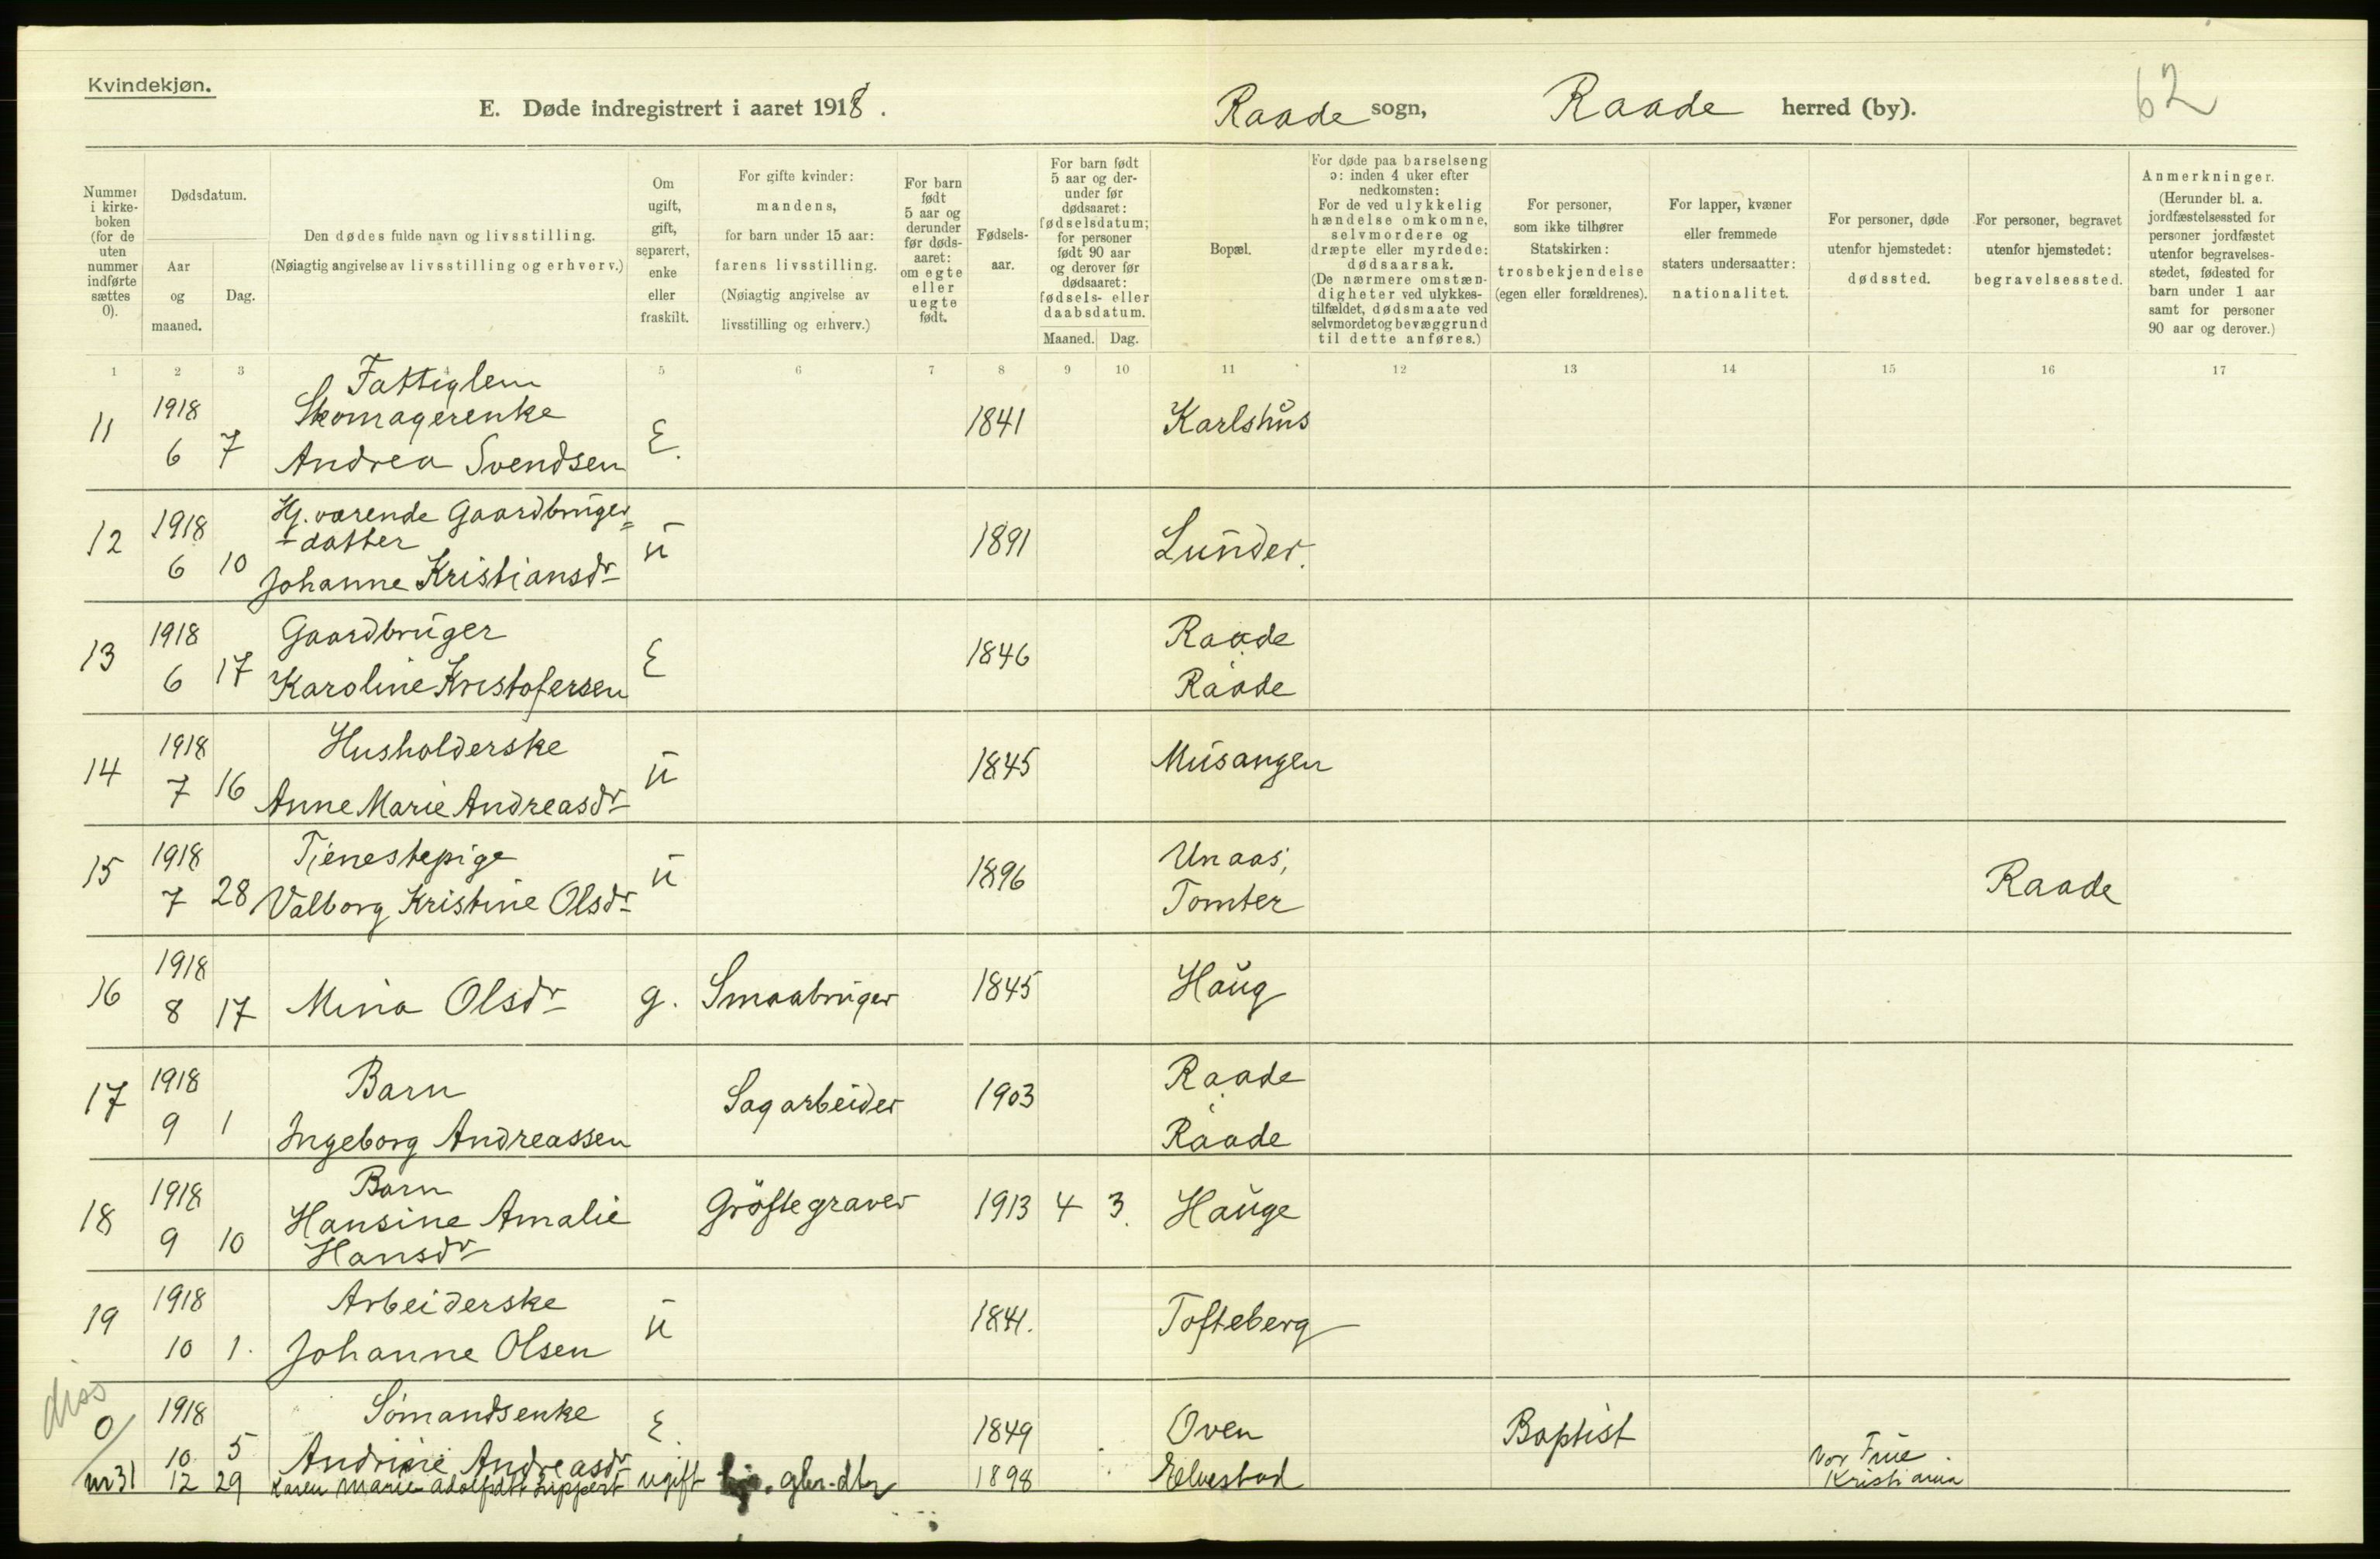 Kvindekjøn.
E. Døde indregistrert i aaret 1918.
Raade sogn, Raade herred (by).
62
Nummer i kirkeboken (for de uten nummer indførte sættes 0).
Dødsdatum.
Aar og maaned.
Dag.
Den dødes fulde navn og livsstilling.
(Nøiagtig angivelse av livsstilling og erhverv.)
Om ugift, gift, separert, enke eller fraskilt.
For gifte kvinder: mandens, for barn under 15 aar: farens livsstilling. (Nøiagtig angivelse av livsstilling og erhverv.)
For barn født 5 aar og derunder før dødsaaret: om egte eller uegte født.
Fødselsaar.
For barn født 5 aar og derunder før dødsaaret: fødselsdatum; for personer født 90 aar og derover før dødsaaret: fødsels- eller daabsdatum.
Maaned. Dag.
Bopæl.
For døde paa barselseng ɔ: inden 4 uker efter nedkomsten: For de ved ulykkelig hændelse omkomne, selvmordere og dræpte eller myrdede: dødsaarsak. (De nærmere omstændigheter ved ulykkestilfældet, dødsmaate ved selvmordet og bevæggrund til dette anføres.)
For personer, som ikke tilhører Statskirken: trosbekjendelse (egen eller forældrenes).
For lapper, kvæner eller fremmede staters undersaatter: nationalitet.
For personer, døde utenfor hjemstedet: dødssted.
For personer, begravet utenfor hjemstedet: begravelsessted.
Anmerkninger. (Herunder bl. a. jordfæstelsessted for personer jordfæstet utenfor begravelsesstedet, fødested for barn under 1 aar samt for personer 90 aar og derover.)
1 2 3 4 5 6 7 8 9 10 11 12 13 14 15 16 17
Fattiglem
11 1918 Skomagerenke E. 1841 Karlshus
6 7 Andrea Svendsen
12 1918 Hj. værende Gaardbruger=
-datter u 1891 Lunder.
6 10 Johanne Kristiansdr
13 1918 Gaardbruger E 1846 Raade
6 17 Karoline Kristofersen Raade
14 1918 Husholderske u 1845 Musangen
7 16 Anne Marie Andreasdr
15 1918 Tjenestepige u 1896 Unaas, Raade
7 28 Valborg Kristine Olsdr Tomter
16 1918
8 17 Mina Olsdr g. Smaabruger 1845 Haug
17 1918 Barn Sagarbeider 1903 Raade
9 1 Ingeborg Andreassen Raade
18 1918 Barn
Hansine Amalie Grøftegraver 1913 4 3. Hauge
9 10 Hansdr
19 1918 Arbeiderske u 1841. Tofteberg
10 1. Johanne Olsen
diss
0 1918 Sömandsenke E. 1849 Oven Baptist
10 5 Andrine Andreasdr
nr 31 12 29 Karen Marie Adolfsdtr Lippert ugift hj. gbr-dtr 1898 Elvestad Vor Frue
Kristiania